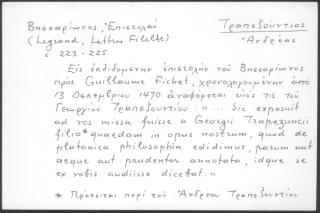 Βησσαρίωνος, Ἐπιστολαί
Τραπεζούντιος
(Legrand, Lettres Filelfe)
Ἀνδρέας
σ 223-225
Εἰς ἐκδιδομένην ἐπιστολὴν τοῦ Βησσαρίωνος
πρὸς Guillaume Fichet, χρονολογουμένην ἀπὸ
13 Δεκεμβρίου 1470 ἀναφέρεται υἱός τις τοῦ
Γεωργίου Τραπεζουντίου: «... Sic exposuit
ad vos missa fuisse a Georgii Trapezuncii
filio* quaedam in opus nostrum, quod de
platonica philosophia edidimus, parum aut
aeque aut prudenter annotata, idque se
ex vobis audiisse dicebat.»
* Πρόκειται περὶ τοῦ Ἀνδρέου Τραπεζουντίου